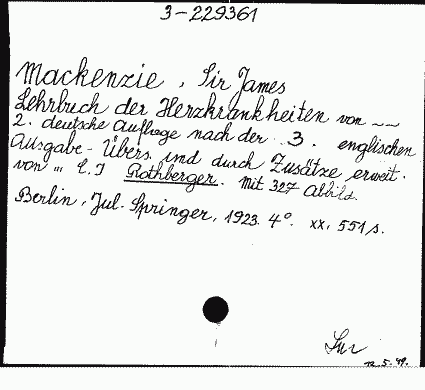 3-229361
Mackenzie, Sir James
Lehrbuch der Herzkrankheiten von ——
2. deutsche Auflage nach der 3. englischen
Ausgabe - Übers. und durch Zusätze erweit.
von " C. J Rothberger. Mit 327 Abbild.
Berlin, Jul. Springer, 1923. 4°. xx, 551 s.
12.5.49.